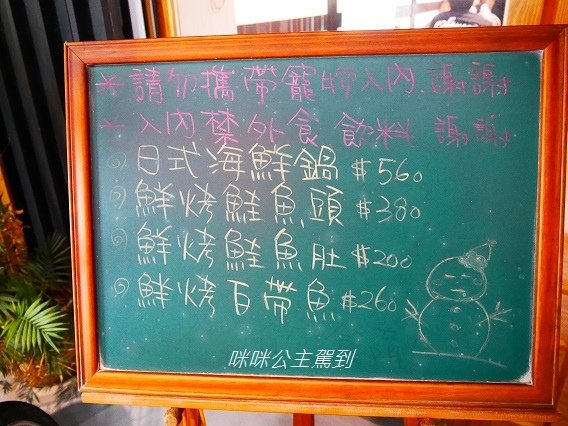 *請勿攜帶寵物入內.謝謝
*入內禁外食 飲料 謝謝
◎日式海鮮鍋 $560
◎鮮烤鮭魚頭 $380
◎鮮烤鮭魚肚 $200
◎鮮烤百帶魚 $260
咪咪公主駕到